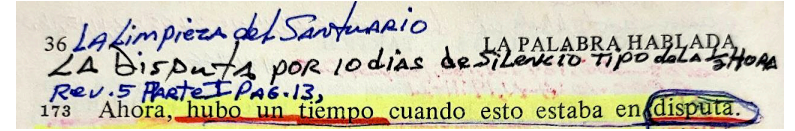 36 LA Limpieza del Santuario
LA PALABRA HABLADA
LA DisPuta POR 10 dias de SilENCIO TIPO de LA ½ HORA
Rev. 5 PARTE I PAG. 13,
173 Ahora, hubo un tiempo cuando esto estaba en disputa.